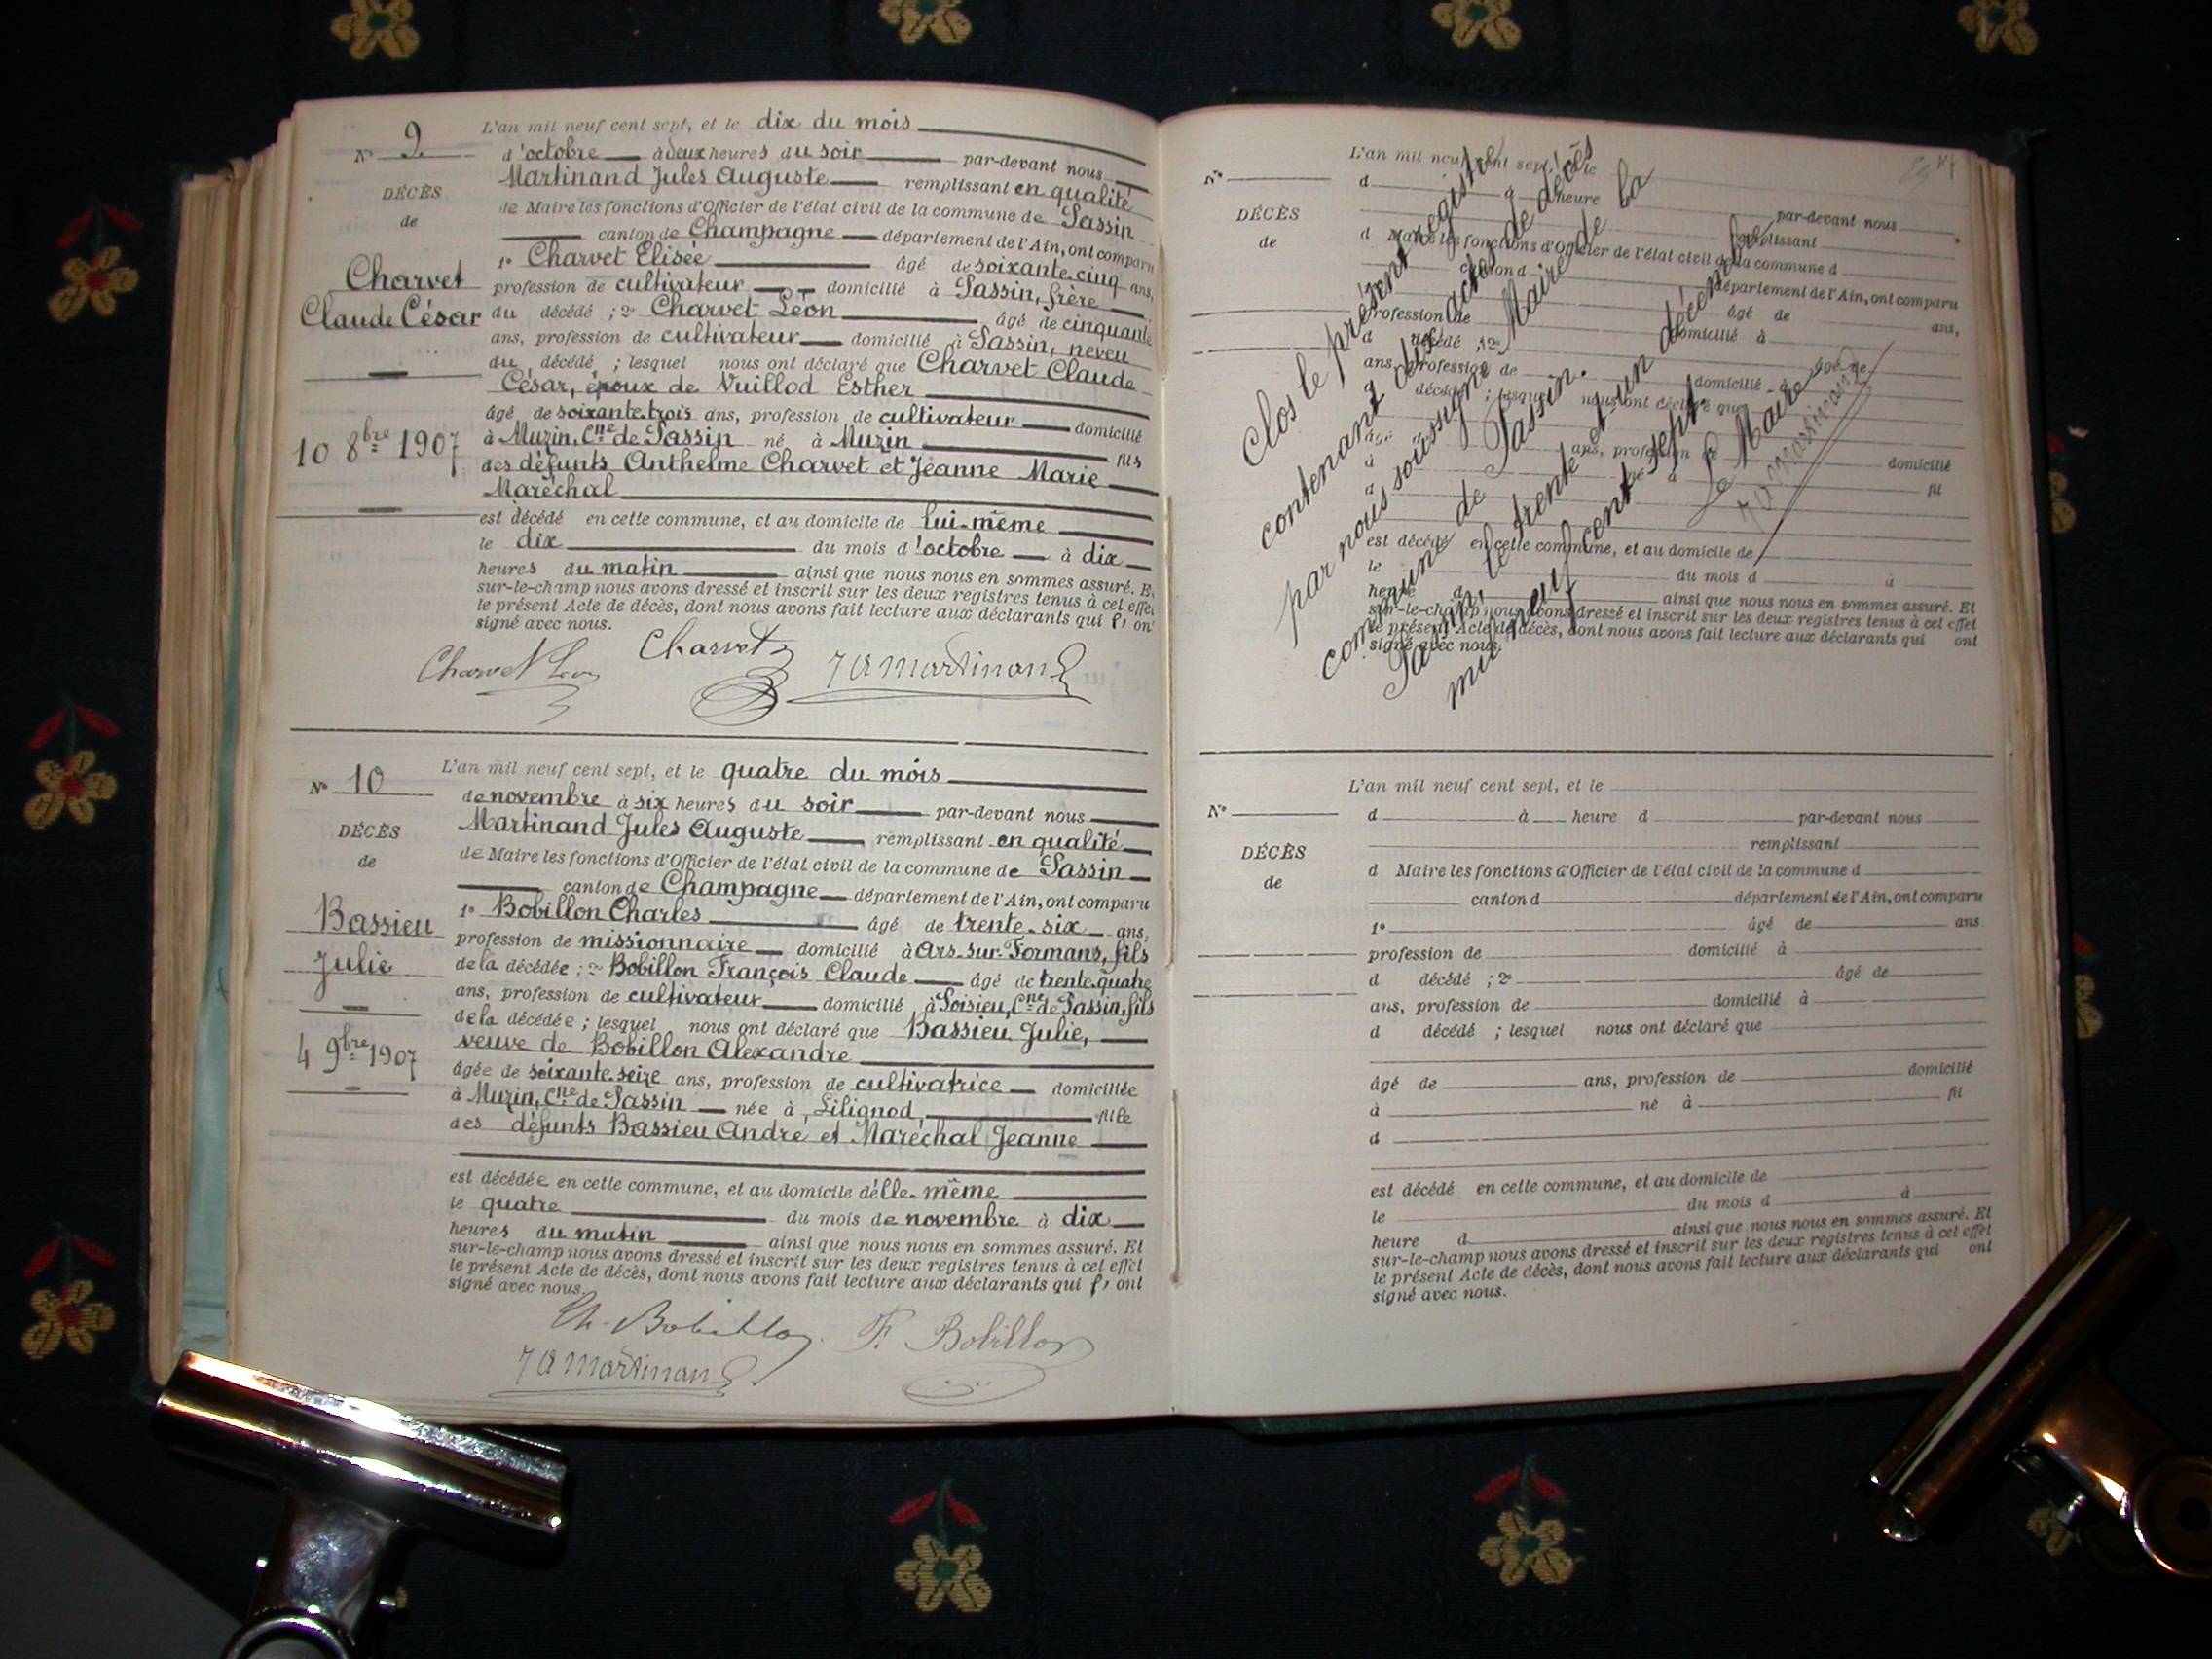 L'an mil neuf cent sept, et le dix du mois
N° 9 d'octobre à deux heures du soir par-devant nous
Martinand Jules Auguste remplissant en qualité
DÉCÈS de Maire les fonctions d'Officier de l'état civil de la commune de Passin
de canton de Champagne département de l'Ain, ont comparu
1° Charvet Elisée âgé de soixante cinq ans,
Charvet profession de cultivateur domicilié à Passin, frère
Claude César du décédé ; 2° Charvet Léon âgé de cinquante
ans, profession de cultivateur domicilié à Passin, neveu
du décédé ; lesquel nous ont déclaré que Charvet Claude
César, époux de Vuillod Esther
âgé de soixante trois ans, profession de cultivateur domicilié
10 8bre 1907 à Muzin, Cne de Passin né à Muzin fils
des défunts Anthelme Charvet et Jeanne Marie
Maréchal
est décédé en cette commune, et au domicile de lui-même
le dix du mois d'octobre à dix
heures du matin ainsi que nous nous en sommes assuré. E
sur-le-champ nous avons dressé et inscrit sur les deux registres tenus à cet effet
le présent Acte de décès, dont nous avons fait lecture aux déclarants qui l'ont
signé avec nous.
Charvet Léon Charvet JA Martinand
L'an mil neuf cent sept, et le quatre du mois
N° 10 de novembre à six heures du soir par-devant nous
Martinand Jules Auguste remplissant en qualité
DÉCÈS de Maire les fonctions d'Officier de l'état civil de la commune de Passin
de canton de Champagne département de l'Ain, ont comparu
1° Bobillon Charles âgé de trente-six ans,
Bassieu profession de missionnaire domicilié à Ars-sur-Formans, fils
Julie de la décédée ; 2° Bobillon François Claude âgé de trente quatre
ans, profession de cultivateur domicilié à Poisieu, Cne de Passin, fils
de la décédée ; lesquel nous ont déclaré que Bassieu Julie,
4 9bre 1907 veuve de Bobillon Alexandre
âgée de soixante-seize ans, profession de cultivatrice domiciliée
à Muzin, Cne de Passin née à Lilignod fille
des défunts Bassieu André et Maréchal Jeanne
est décédée en cette commune, et au domicile d'elle-même
le quatre du mois de novembre à dix
heures du matin ainsi que nous nous en sommes assuré. Et
sur-le-champ nous avons dressé et inscrit sur les deux registres tenus à cet effet
le présent Acte de décès, dont nous avons fait lecture aux déclarants qui l'ont
signé avec nous.
Ch. Bobillon F. Bobillon
JA Martinand
L'an mil neuf cent sept, et le
N° d à heure d par-devant nous
remplissant
DÉCÈS d Maire les fonctions d'Officier de l'état civil de la commune d
de canton d département de l'Ain, ont comparu
âgé de ans,
profession de domicilié à
d décédé ; 2°
ans, profession de domicilié à âgé de
décédé ; lesquel nous ont déclaré que
âgé ans, profession de domicilié
à né à fil
d
est décédé en cette commune, et au domicile de
le du mois d à
heure d ainsi que nous nous en sommes assuré. Et
sur-le-champ nous avons dressé et inscrit sur les deux registres tenus à cet effet
le présent Acte de décès, dont nous avons fait lecture aux déclarants qui ont
signé avec nous.
Clos le présent registre
contenant dix actes de décès
par nous soussigné Maire de la
commune de Passin.
Passin, le trente et un décembre
mil neuf cent sept.
Le Maire
JA Martinand
L'an mil neuf cent sept, et le
N° d à heure d par-devant nous
remplissant
DÉCÈS d Maire les fonctions d'Officier de l'état civil de la commune d
de canton d département de l'Ain, ont comparu
1° âgé de ans
profession de domicilié à
d décédé ; 2° âgé de
ans, profession de domicilié à
d décédé ; lesquel nous ont déclaré que
âgé de ans, profession de domicilié
à né à fil
d
est décédé en cette commune, et au domicile de
le du mois d à
heure d ainsi que nous nous en sommes assuré. Et
sur-le-champ nous avons dressé et inscrit sur les deux registres tenus à cet effet
le présent Acte de décès, dont nous avons fait lecture aux déclarants qui ont
signé avec nous.